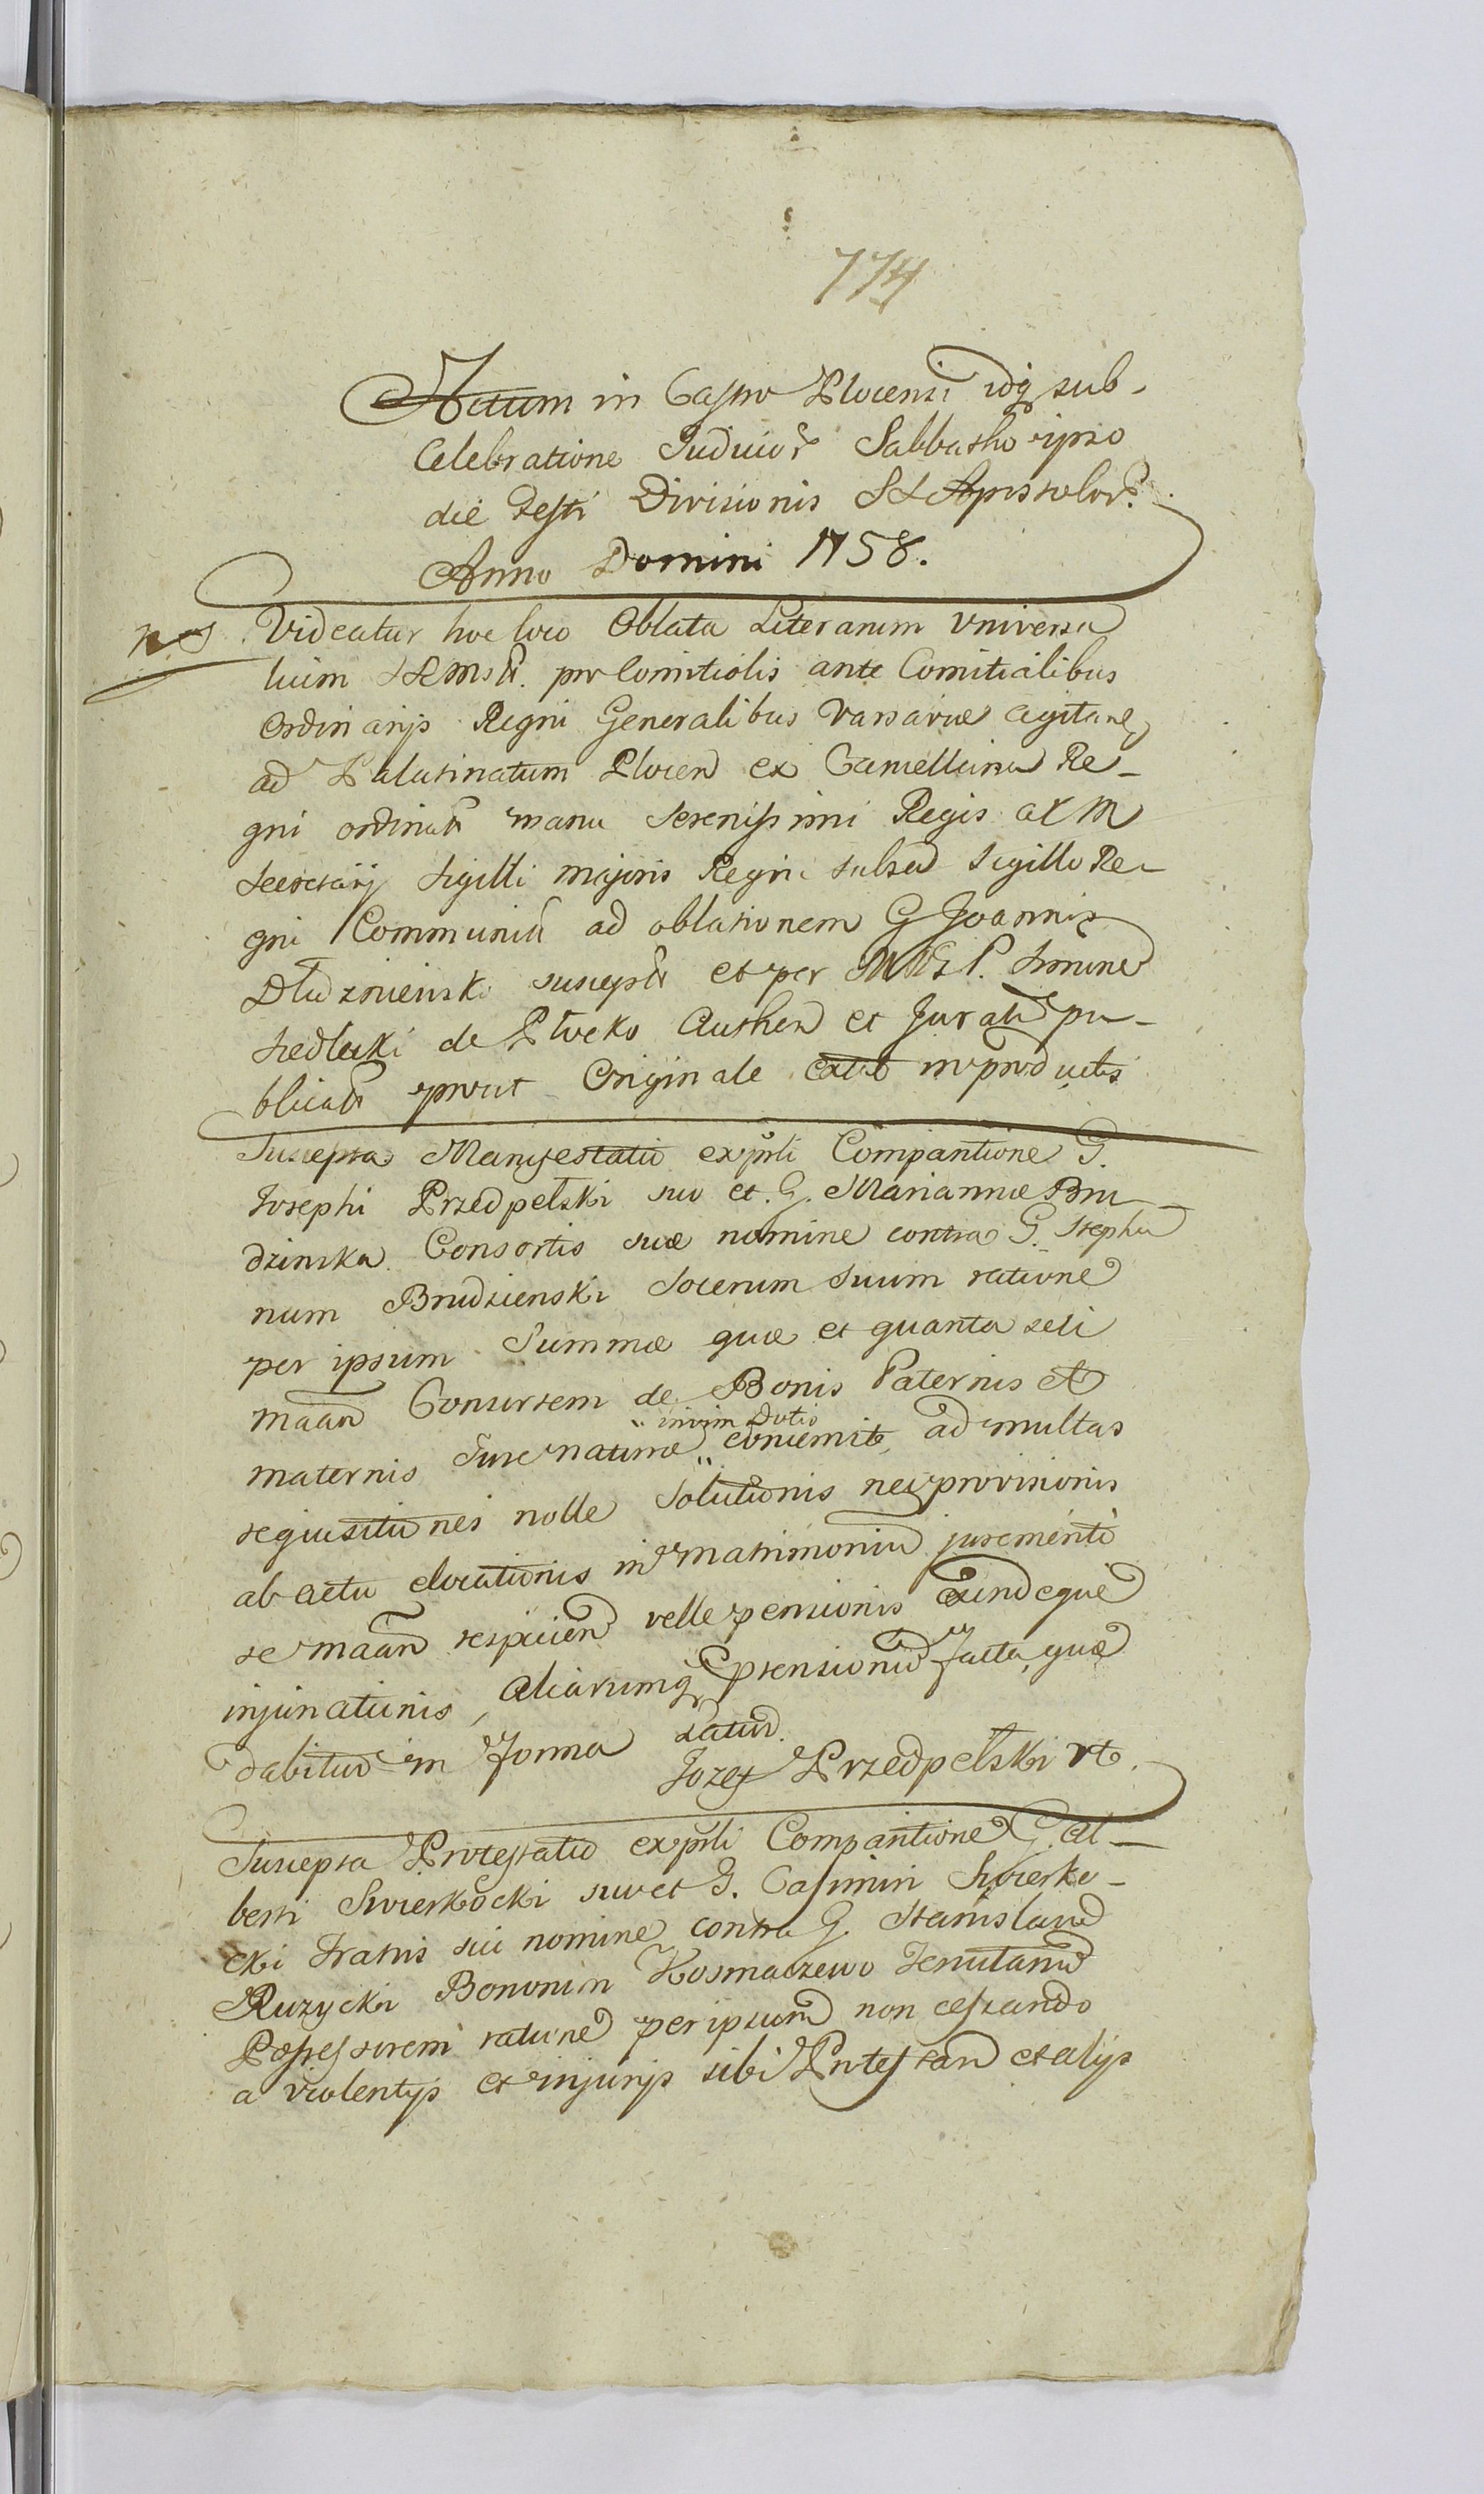 774
Actum in Castro Plocensi idq sub
Celebratione Judicior Sabbatho ipso
die Festi Divisionis SS Apostolor.
Anno Domini 1758.
Videatur hoc loco Oblata Literarum Universa
lium pro Comitiolis ante Comitialibus
Ordinarijs Regni Generalibus Varsaviae agitan
ad Palatinatum Plocen ex Cancellaria Re-
gni ordinat manu Serenissimi Regis ac M
Secretarij Sigilli majoris Regni subscr Sigillo Re-
gni Communit ad oblationem G Joannis
Dłuzniewski suscept et per
Siedlecki de Płocko Authen et Jurat pu-
blicat prout Originale extat in productis
Suscepta Manifestatio ex prsli Comparitione G.
Josephi Przedpełski suo et G. Mariannae Bru
dzinska Consortis suae nomine contra G. Stepha
num Brudzienski Socerum suum ratione
per ipsum Summae quae et quanta seli
maan Consortem de Bonis Paternis et
maternis Jure naturae convenit, ad multas
invim Dotis
requisitiones nolle Solutionis neq provisionis
ab actu elocationis in matrimonium juremerito
se maan respicien velle pensionis exindeque
injuriationis, aliarumq ptensionu facta, quae
dabitur in forma latiu.
Jozef Przedpełski
Suscepta Protestatio ex prsli Comparitione G. Al-
berti Swierkocki suo et G. Casimiri Swierko-
cki Fratris sui nomine contra G. Stanislaum
Ruzycki Bonorum Kosmaczewo Tenutarium
Possessorem ratione per ipsum non cessando
a violentijs et injurijs sibi Protestan et alijs